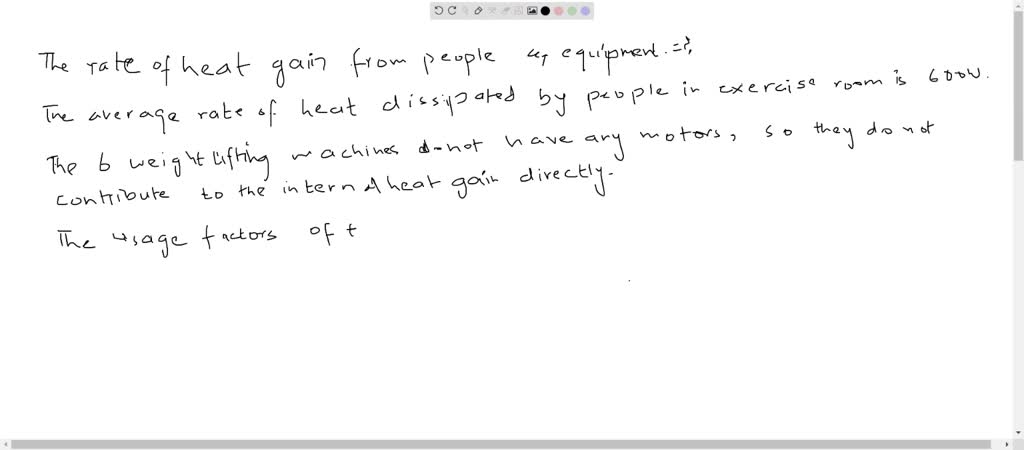 The rate of heat gain from people & equipment =?,
The average rate of heat dissipated by people in exercise room is 600W.
The 6 weight lifting machines do not have any motors, so they do not
contribute to the internal heat gain directly.
The usage factors of t